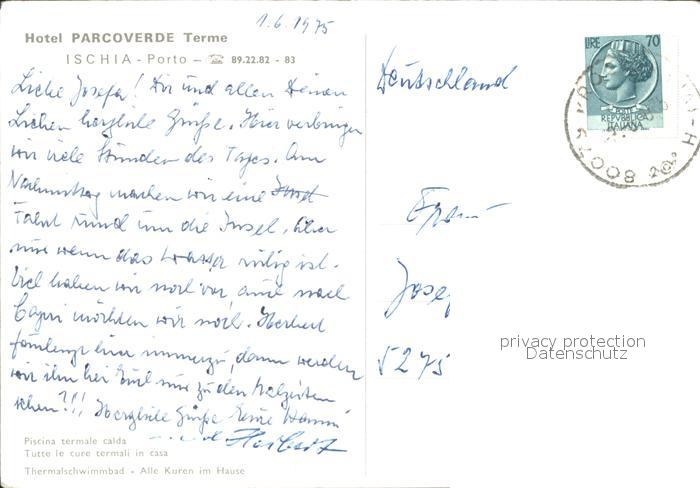 1.6.1975
Hotel PARCOVERDE Terme
ISCHIA - Porto - ☎ 89.22.82 - 83
Liebe Josefa! Dir und allen Deinen
Lieben herzliche Grüße. Hier verbringen
wir viele Stunden des Tages. Am
Nachmittag machen wir eine Insel
Fahrt rund um die Insel. Aber
nur wenn das Wasser ruhig ist.
Viel haben wir noch vor, auch nach
Capri möchten wir noch. Herbert
faulenzt hier immerzu, dann werden
wir ihn bei Euch nur zu den Mahlzeiten
sehen?!! Herzliche Grüße Eure Hanni
und Herbert
Piscina termale calda
Tutte le cure termali in casa
Thermalschwimmbad - Alle Kuren im Hause
Deutschland
LIRE 70
POSTE
REPVBBLICA
ITALIANA
80079
Frau
Josef
5275
privacy protection
Datenschutz